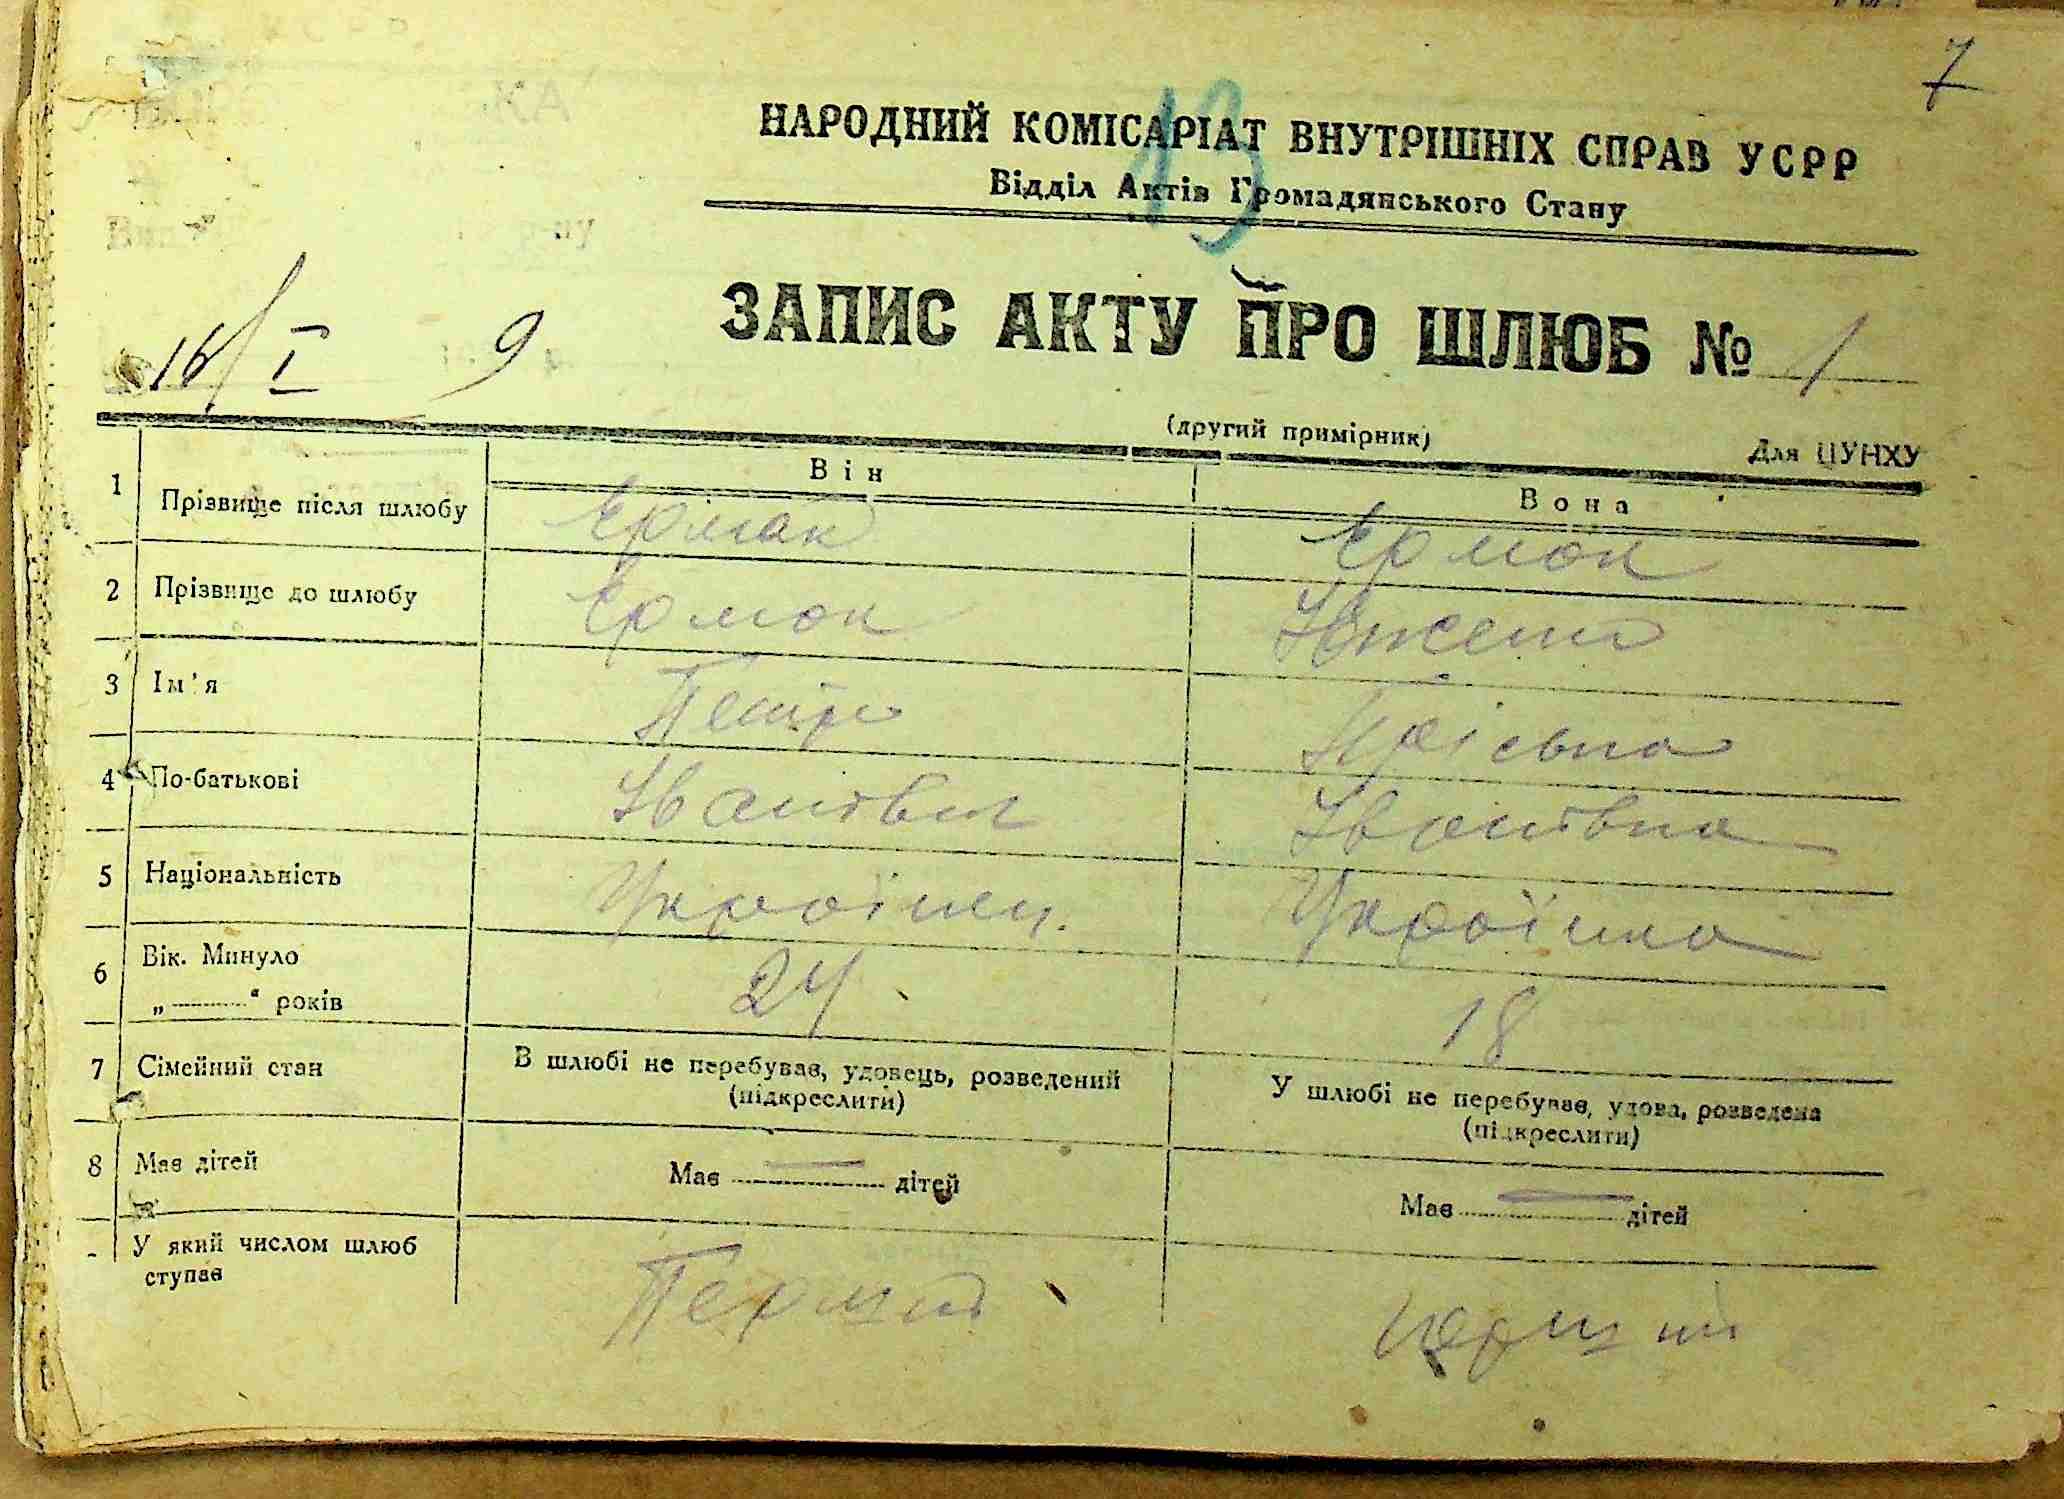 7
13
НАРОДНИЙ КОМІСАРІАТ ВНУТРІШНІХ СПРАВ УСРР
Відділ Актів Громадянського Стану
16/I 9
ЗАПИС АКТУ ПРО ШЛЮБ № 1
(другий примірник) Для ЦУНХУ
Він Вона
1 Прізвище після шлюбу Єрмак Єрмак
2 Прізвище до шлюбу Єрмак
3 Ім'я Петро
4 По-батькові Іванович Іванівна
5 Національність Українец. Українка
6 Вік. Минуло
„ “ років 24 18
7 Сімейний стан В шлюбі не перебуває, удовець, розведений У шлюбі не перебуває, удова, розведена
(підкреслити) (підкреслити)
8 Має дітей Має — дітей Має — дітей
У який числом шлюб
ступає Перший перший